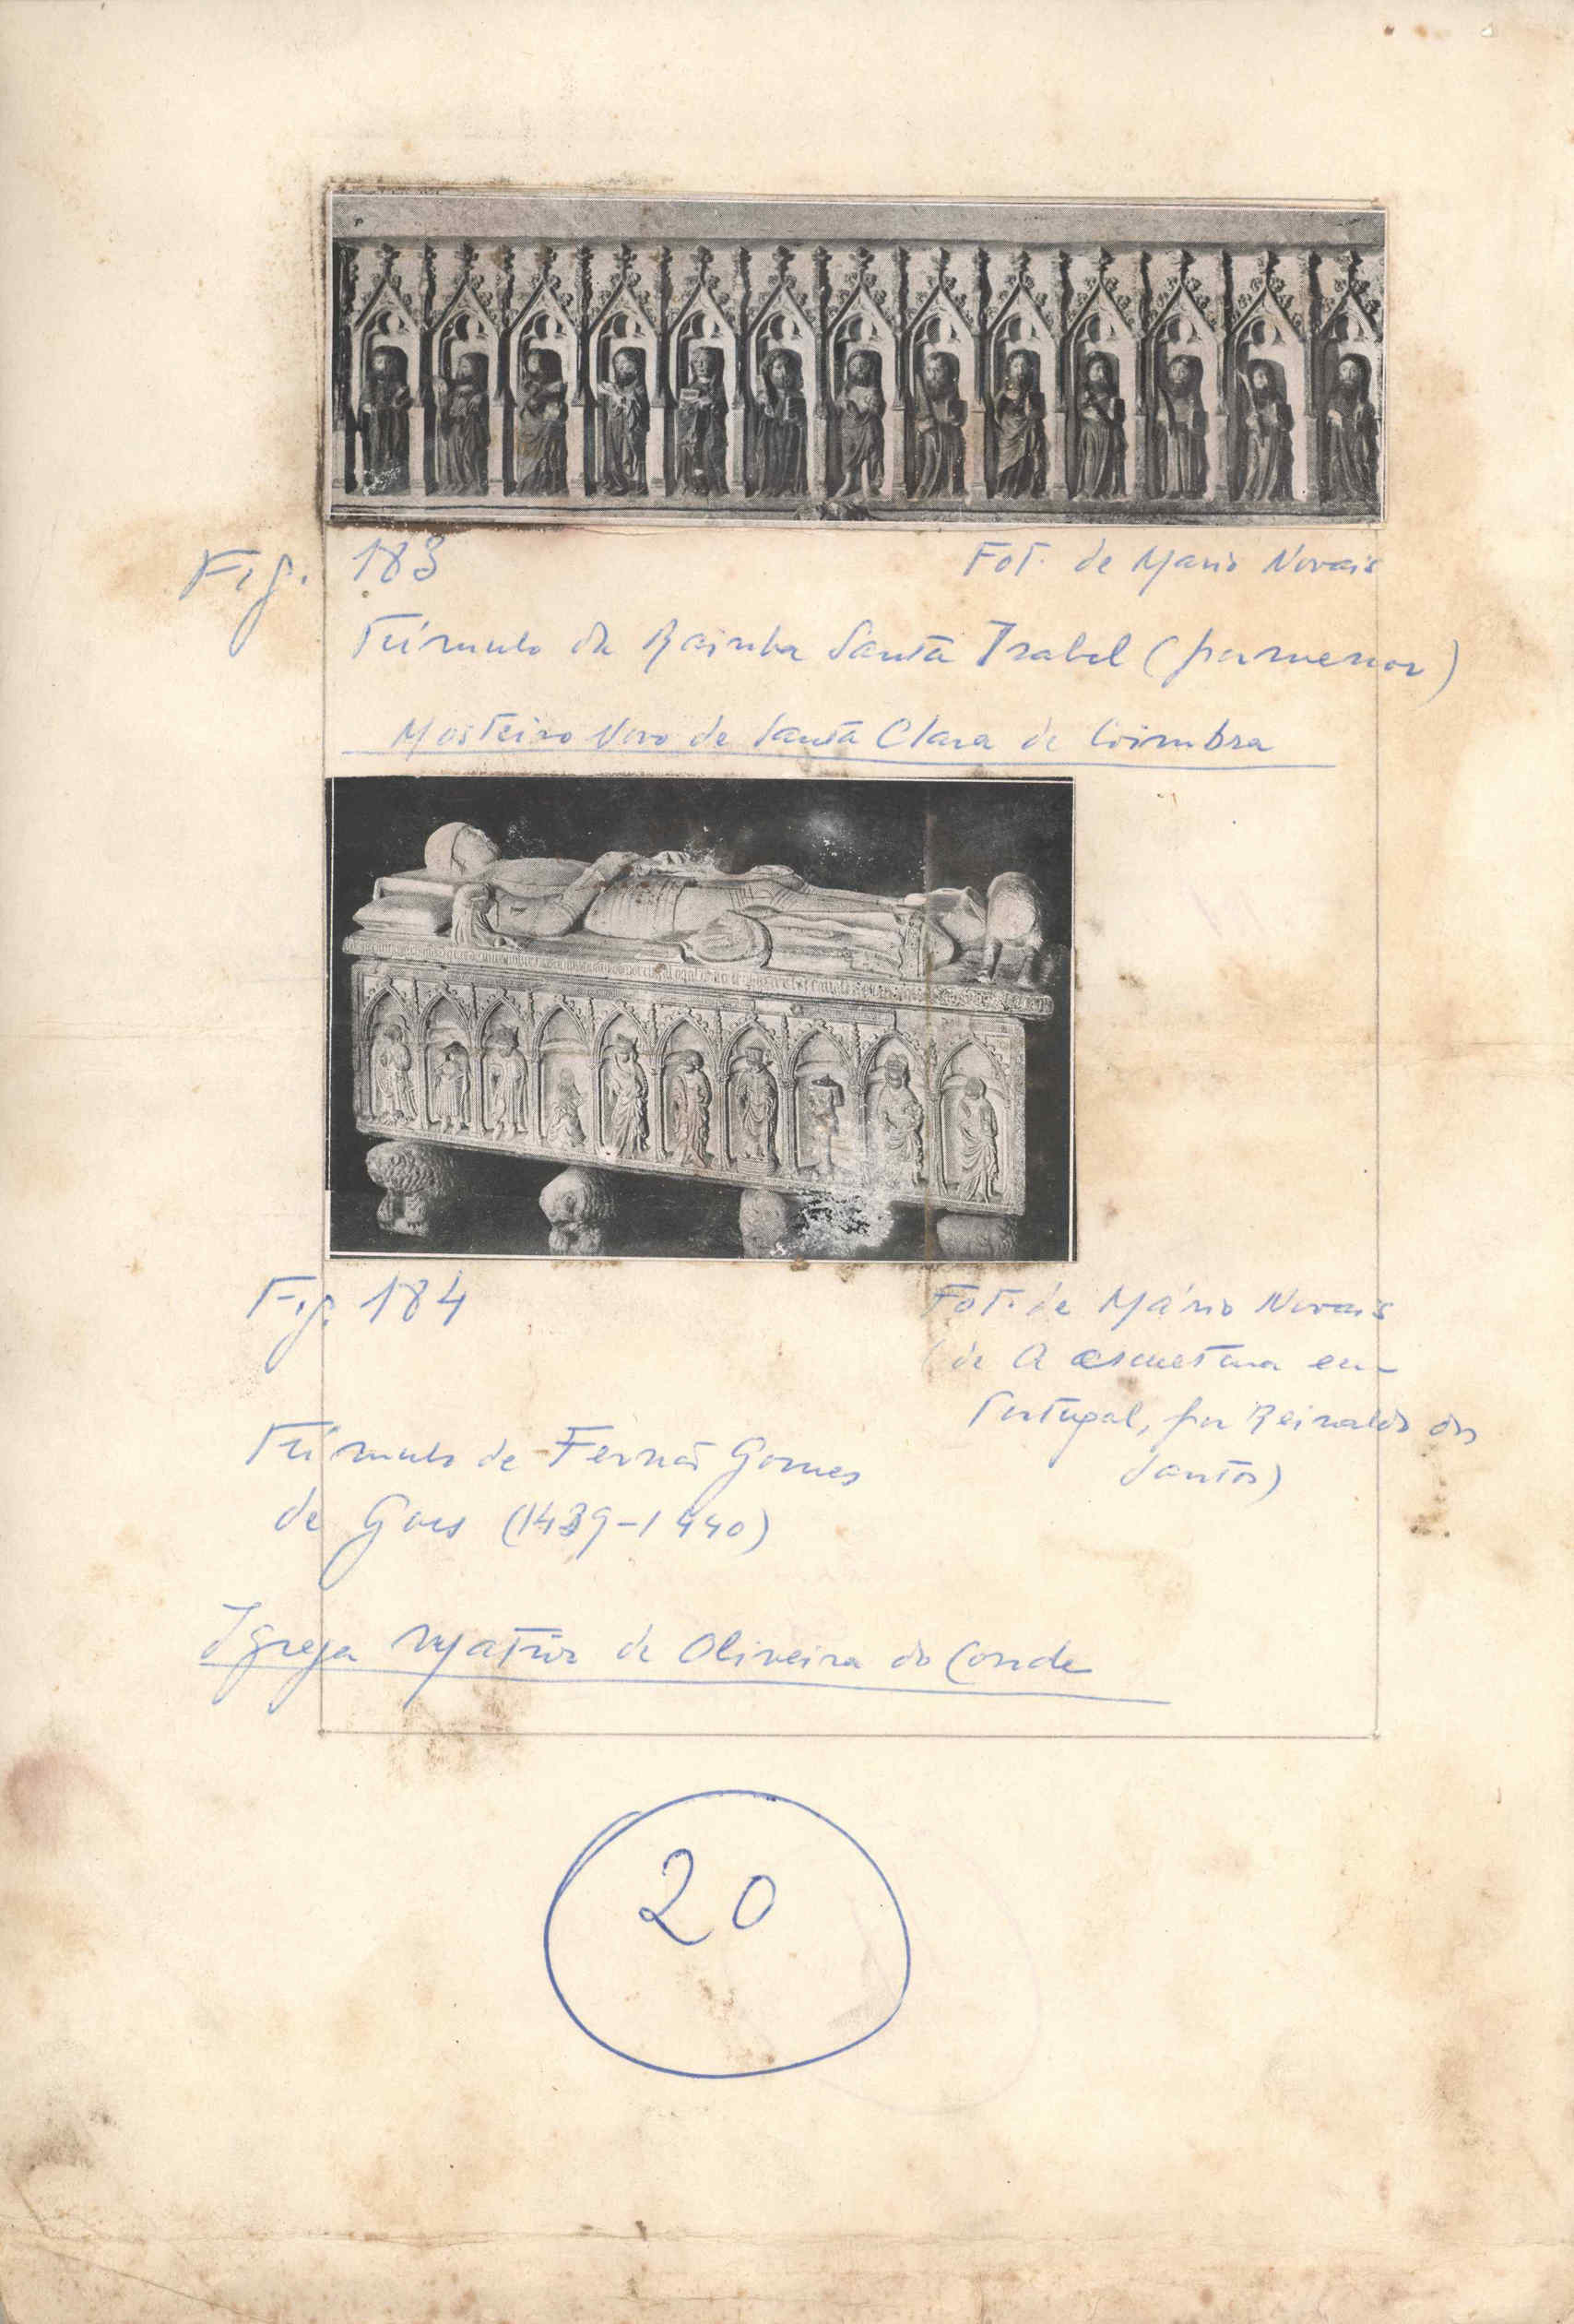 Fig. 183
Fot. de Mario Novais
Túmulo da Rainha Santa Isabel (pormenor)
Mosteiro Novo de Santa Clara de Coimbra
Fig. 184
Fot. de Mário Novais
(de A escultura em
Portugal, por Reinaldo dos
Santos)
Túmulo de Fernão Gomes
de Goes (1439-1440)
Igreja Matriz de Oliveira do Conde
20